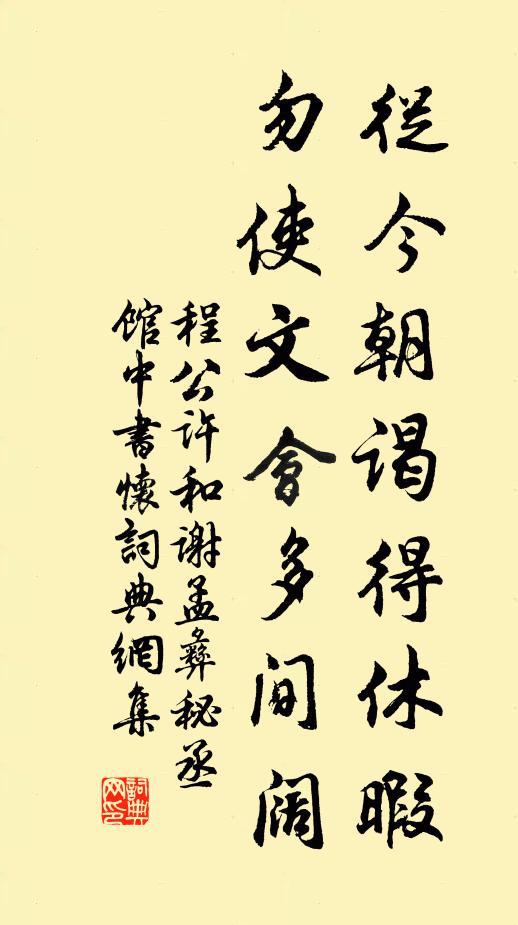 從今朝謁得休暇
勿使文會多間闊
程公許和謝孟彞秘丞
館中書懷詞典網集
詞典
网印